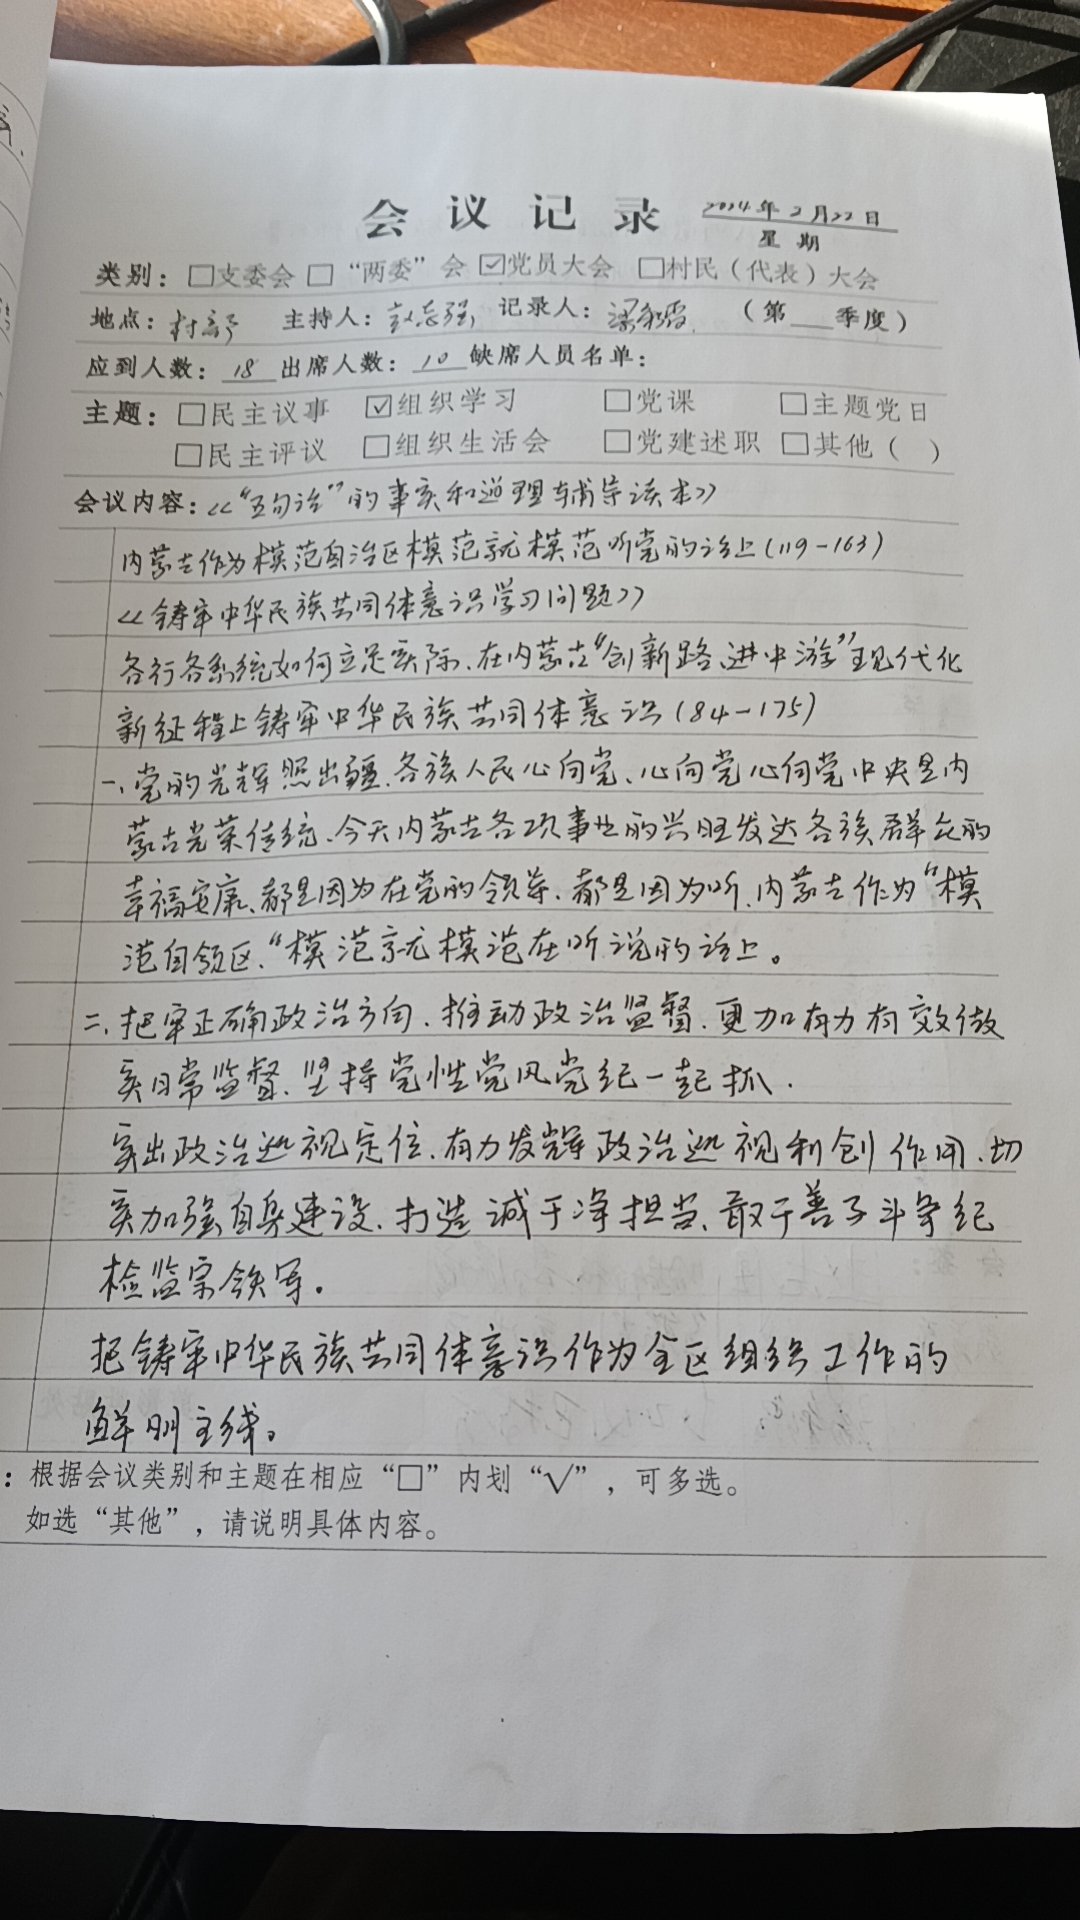 会议记录 2024年2月22日
星期
类别：□支委会 □“两委”会 ☑党员大会 □村民（代表）大会
地点：村部 主持人：赵志强 记录人：梁 霞 （第 季度）
应到人数：18 出席人数：10 缺席人员名单：
主题：□民主议事 ☑组织学习 □党课 □主题党日
□民主评议 □组织生活会 □党建述职 □其他（ ）
会议内容：《“五句话”的事实和道理辅导读本》
内蒙古作为模范自治区模范就模范听党的话上(119-163)
《铸牢中华民族共同体意识学习问题》
各行各系统如何立足实际、在内蒙古“创新路、进中游”现代化
新征程上铸牢中华民族共同体意识(84-175)
一、党的光辉照出疆、各族人民心向党、心向党心向党中央是内
蒙古光荣传统、今天内蒙古各项事业的兴旺发达各族群众的
幸福安康、都是因为在党的领导、都是因为听、内蒙古作为“模
范自领区、“模范就模范在听说的话上。
二、把牢正确政治方向、推动政治监督、更加有力有效做
实日常监督、坚持党性党风党纪一起抓.
突出政治巡视定位、有力发挥政治巡视利创作用、切
实加强自身建设、打造诚于净担当、敢于善于斗争纪
检监察铁军。
把铸牢中华民族共同体意识作为全区组织工作的
鲜明主线。
：根据会议类别和主题在相应“□”内划“√”，可多选。
如选“其他”，请说明具体内容。